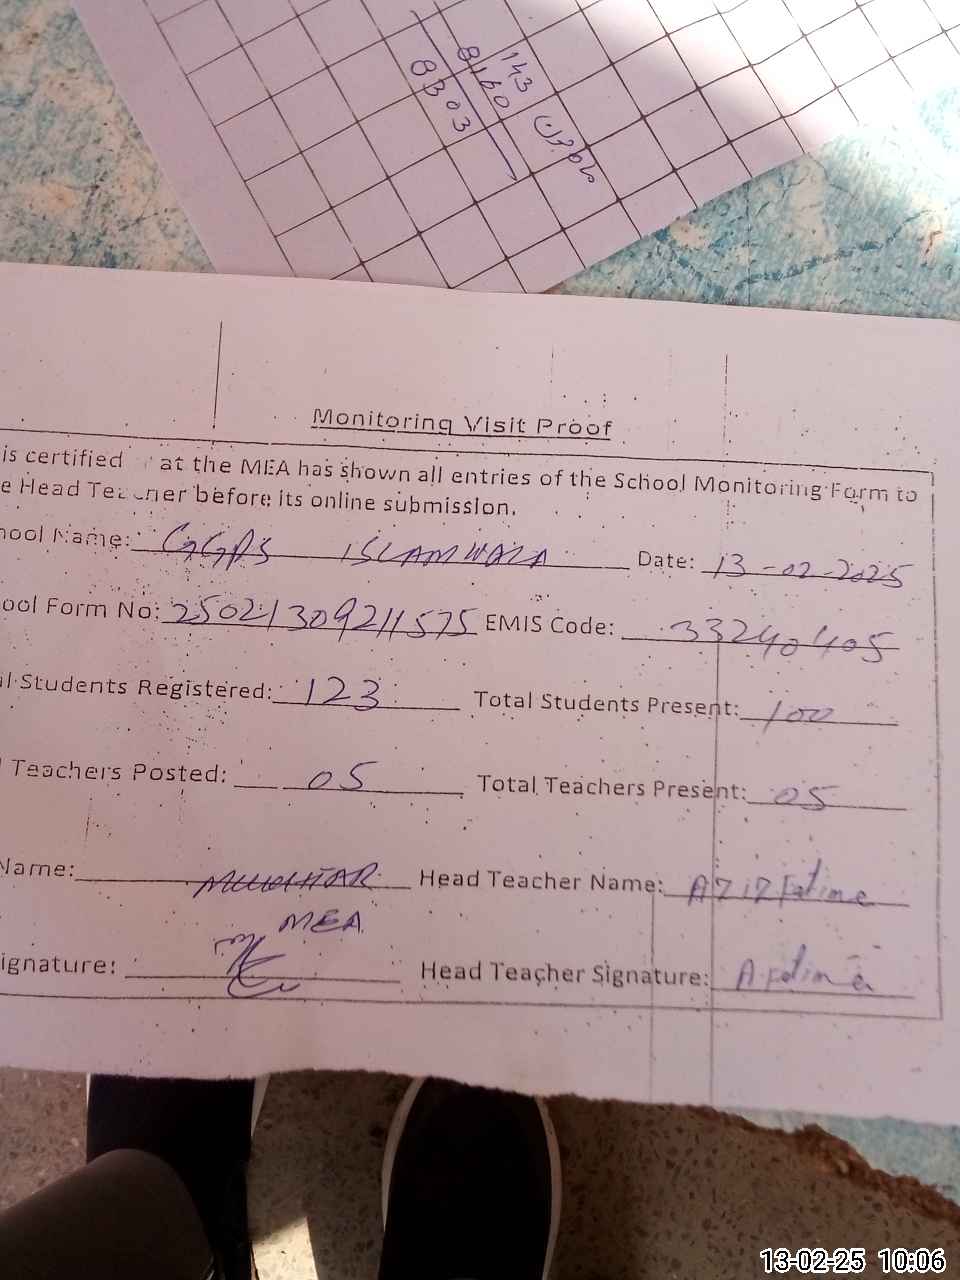 143
8160
8303
Monitoring Visit Proof
is certified at the MEA has shown all entries of the School Monitoring Form to
e Head Teacher before its online submission.
hool Name: GGPS ISLAMWALA Date: 13-02-2025
ool Form No: 25021309211575 EMIS Code: 33240405
al Students Registered: 123 Total Students Present: 100
Teachers Posted: 05 Total Teachers Present: 05
Name: MUKHTAR Head Teacher Name: Fatima
MEA
ignature: Head Teacher Signature: A.Fatima
13-02-25 10:06